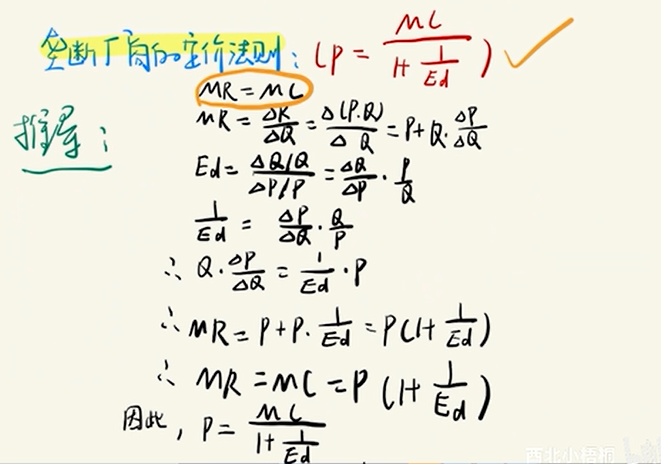 垄断厂商的定价法则：(P = MC / (1 + 1/Ed)) ✓
MR = MC
推导：
MR = ΔR/ΔQ = Δ(P·Q)/ΔQ = P+Q·ΔP/ΔQ
Ed = (ΔQ/Q)/(ΔP/P) = ΔQ/ΔP · P/Q
1/Ed = ΔP/ΔQ · Q/P
∴ Q·ΔP/ΔQ = 1/Ed · P
∴ MR = P + P · 1/Ed = P(1 + 1/Ed)
∴ MR = MC = P (1 + 1/Ed)
因此，P = MC / (1 + 1/Ed)
西北小梧桐